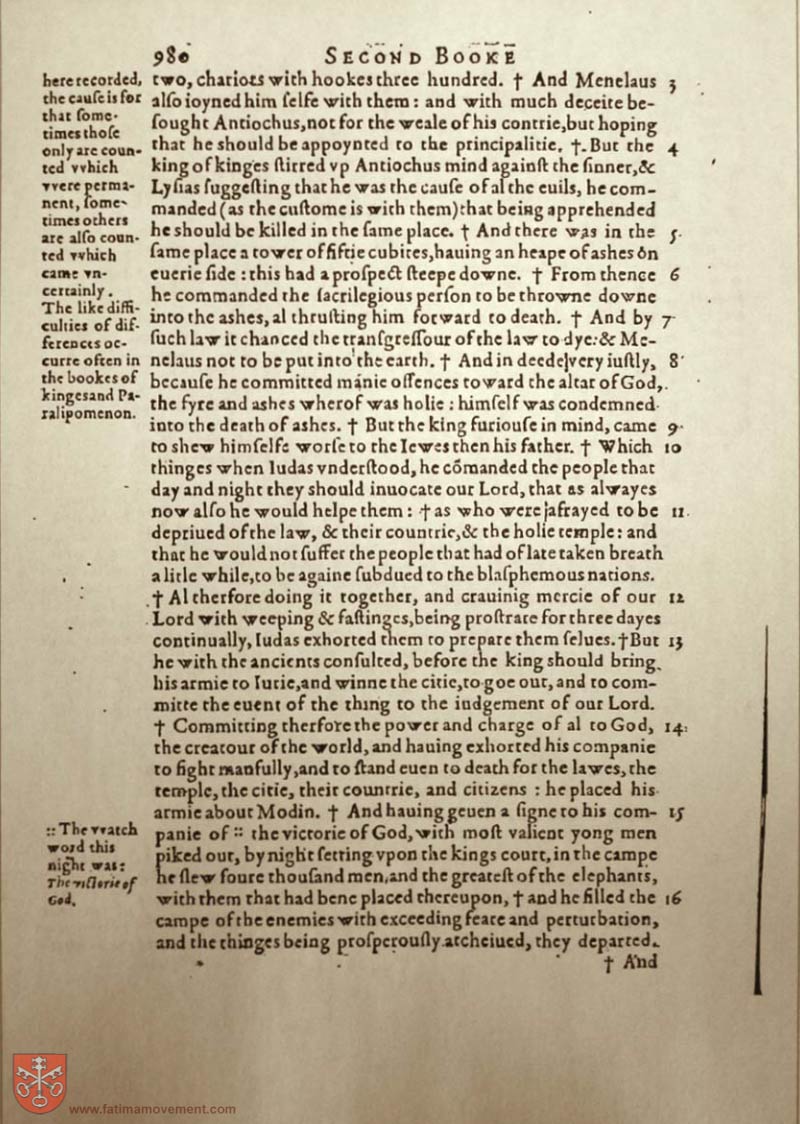 980 SECOND BOOKE
here recorded,
the cauſe is for
that ſome-
times thoſe
only are coun-
ted vvhich
vvere perma-
nent, ſome-
times others
are alſo coun-
ted vvhich
came vn-
certainly.
The like diffi-
culties of dif-
ferences oc-
curre often in
the bookes of
kingesand Pa-
ralipomenon.
two, chariots with hookes three hundred. † And Menelaus 3
alſo ioyned him ſelfe with them: and with much deceite be-
ſought Antiochus, not for the weale of his contrie, but hoping
that he should be appoynted to the principalitie. †. But the 4
king of kinges ſtirred vp Antiochus mind againſt the ſinner, &
Lyſias ſuggeſting that he was the cauſe of al the euils, he com-
manded (as the cuſtome is with them) that being apprehended
he should be killed in the ſame place. † And there was in the 5.
ſame place a tower of fiftie cubites, hauing an heape of ashes on
euerie ſide: this had a proſpect ſteepe downe. † From thence 6
he commanded the ſacrilegious perſon to be throwne downe
into the ashes, al thruſting him forward to death. † And by 7
ſuch law it chanced the tranſgreſſour of the law to dye: & Me-
nelaus not to be put into the earth. † And in deede very iuſtly, 8
becauſe he committed manie offences toward the altar of God,
the fyre and ashes wherof was holie: himſelf was condemned
into the death of ashes. † But the king furiouſe in mind, came 9
to shew himſelfe worſe to the Iewes then his father. † Which 10
thinges when Iudas vnderſtood, he cõmanded the people that
day and night they should inuocate our Lord, that as alwayes
now alſo he would helpe them: † as who were afrayed to be 11.
depriued of the law, & their countrie, & the holie temple: and
that he would not ſuffer the people that had of late taken breath
a litle while, to be againe ſubdued to the blaſphemous nations.
† Al therfore doing it together, and crauinig mercie of our 12
Lord with weeping & faſtinges, being proſtrate for three dayes
continually, Iudas exhorted them to prepare them ſelues. † But 13
he with the ancients conſulted, before the king should bring
his armie to Iurie, and winne the citie, to goe out, and to com-
mitte the euent of the thing to the iudgement of our Lord.
† Committing therfore the power and charge of al to God, 14:
the creatour of the world, and hauing exhorted his companie
to fight manfully, and to ſtand euen to death for the lawes, the
temple, the citie, their countrie, and citizens: he placed his
armie about Modin. † And hauing geuen a ſigne to his com- 15
panie of :: the victorie of God, with moſt valient yong men
piked out, by night ſetting vpon the kings court, in the campe
he ſlew foure thouſand men, and the greateſt of the elephants,
with them that had bene placed thereupon, † and he filled the 16
campe of the enemies with exceeding feare and perturbation,
and the thinges being proſperouſly atcheiued, they departed.
:: The vvatch
word this
night was:
The victorie of
God.
† And
www.fatimamovement.com